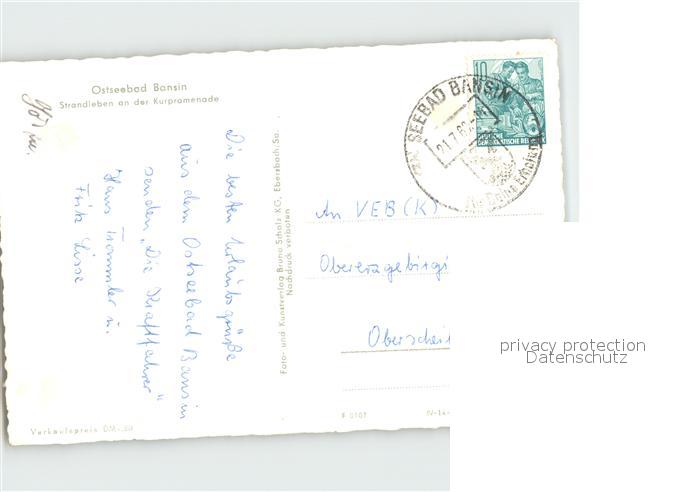 Ostseebad Bansin
Strandleben an der Kurpromenade
Die besten Urlaubsgrüße
aus dem Ostseebad Bansin
senden „Die Kraftfahrer"
Hans Trommler u.
Fritz Lisse
Verkaufspreis DM -,20
Foto- und Kunstverlag Bruno Scholz KG, Ebersbach/Sa.
Nachdruck verboten
SEEBAD BANSIN
21.7.60
10
DEUTSCHE
DEMOKRATISCHE REP
An VEB (K)
Obererzgebirgi
Oberschei
F 0107
IV-14-
privacy protection
Datenschutz